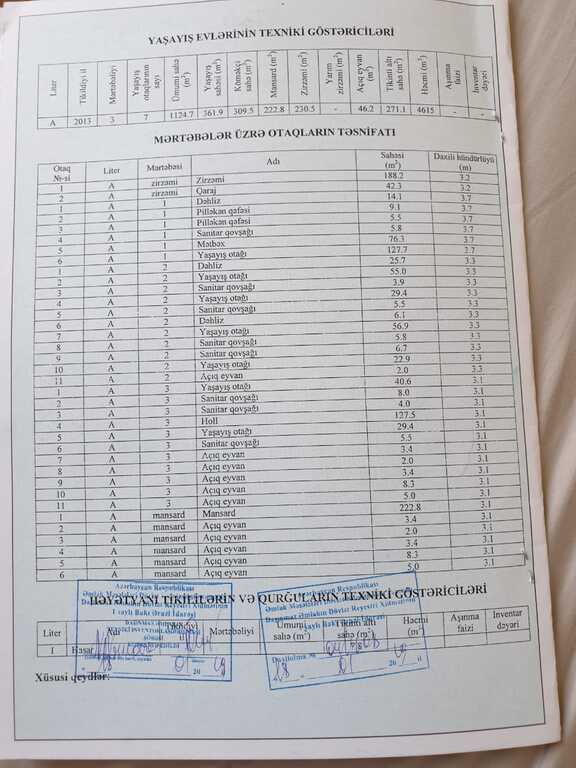 YAŞAYIŞ EVLƏRİNİN TEXNİKİ GÖSTƏRİCİLƏRİ
Liter Tikildiyi il Mərtəbəliyi Yaşayış otaqlarının sayı Ümumi sahə (m²) Yaşayış sahəsi (m²) Köməkçi sahə (m²) Mansard (m²) Zirzəmi (m²) Yarım zirzəmi (m²) Açıq eyvan (m²) Tikinti altı sahə (m²) Həcmi (m³) Aşınma faizi İnventar dəyəri
A 2013 3 7 1124.7 361.9 309.5 222.8 230.5 - 46.2 271.1 4615 - -
MƏRTƏBƏLƏR ÜZRƏ OTAQLARIN TƏSNİFATI
Otaq №-si Liter Mərtəbəsi Adı Sahəsi (m²) Daxili hündürlüyü (m)
1 A zirzəmi Zirzəmi 188.2 3.2
2 A zirzəmi Qaraj 42.3 3.2
1 A 1 Dəhliz 14.1 3.7
2 A 1 Pilləkən qəfəsi 9.1 3.7
3 A 1 Pilləkən qəfəsi 5.5 3.7
4 A 1 Sanitar qovşağı 5.8 3.7
5 A 1 Mətbəx 76.3 3.7
6 A 1 Yaşayış otağı 127.7 3.7
1 A 2 Dəhliz 25.7 3.3
2 A 2 Yaşayış otağı 55.0 3.3
3 A 2 Sanitar qovşağı 3.9 3.3
4 A 2 Yaşayış otağı 29.4 3.3
5 A 2 Sanitar qovşağı 5.5 3.3
6 A 2 Dəhliz 6.1 3.3
7 A 2 Yaşayış otağı 56.9 3.3
8 A 2 Sanitar qovşağı 5.8 3.3
9 A 2 Sanitar qovşağı 6.7 3.3
10 A 2 Yaşayış otağı 22.9 3.3
11 A 2 Açıq eyvan 2.0 3.3
1 A 3 Yaşayış otağı 40.6 3.1
2 A 3 Sanitar qovşağı 8.0 3.1
3 A 3 Sanitar qovşağı 4.0 3.1
4 A 3 Holl 127.5 3.1
5 A 3 Yaşayış otağı 29.4 3.1
6 A 3 Sanitar qovşağı 5.5 3.1
7 A 3 Açıq eyvan 3.4 3.1
8 A 3 Açıq eyvan 2.0 3.1
9 A 3 Açıq eyvan 3.4 3.1
10 A 3 Açıq eyvan 8.3 3.1
11 A 3 Açıq eyvan 5.0 3.1
1 A mansard Mansard 222.8 3.1
2 A mansard Açıq eyvan 3.4 3.1
3 A mansard Açıq eyvan 2.0 3.1
4 A mansard Açıq eyvan 3.4 3.1
5 A mansard Açıq eyvan 8.3 3.1
6 A mansard Açıq eyvan 5.0 3.1
HƏYƏTYANI TİKİLİLƏRİN VƏ QURĞULARIN TEXNİKİ GÖSTƏRİCİLƏRİ
Liter Adı Tikildiyi il Mərtəbəliyi Ümumi sahə (m²) Tikinti altı sahə (m²) Həcmi (m³) Aşınma faizi İnventar dəyəri
I Hasar
Azərbaycan Respublikası
Azərbaycan Respublikası
Xüsusi qeydlər: